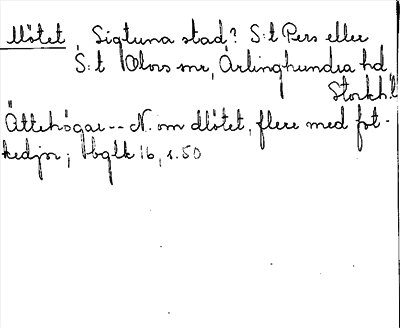 Mötet, Sigtuna stad? S:t Pers eller
S:t Olovs snr, Ärlinghundra hd
Stockh. l
Ättehögar -- N. om dlötet, flere med fot-
kedjor; Hbglk 16, s. 50